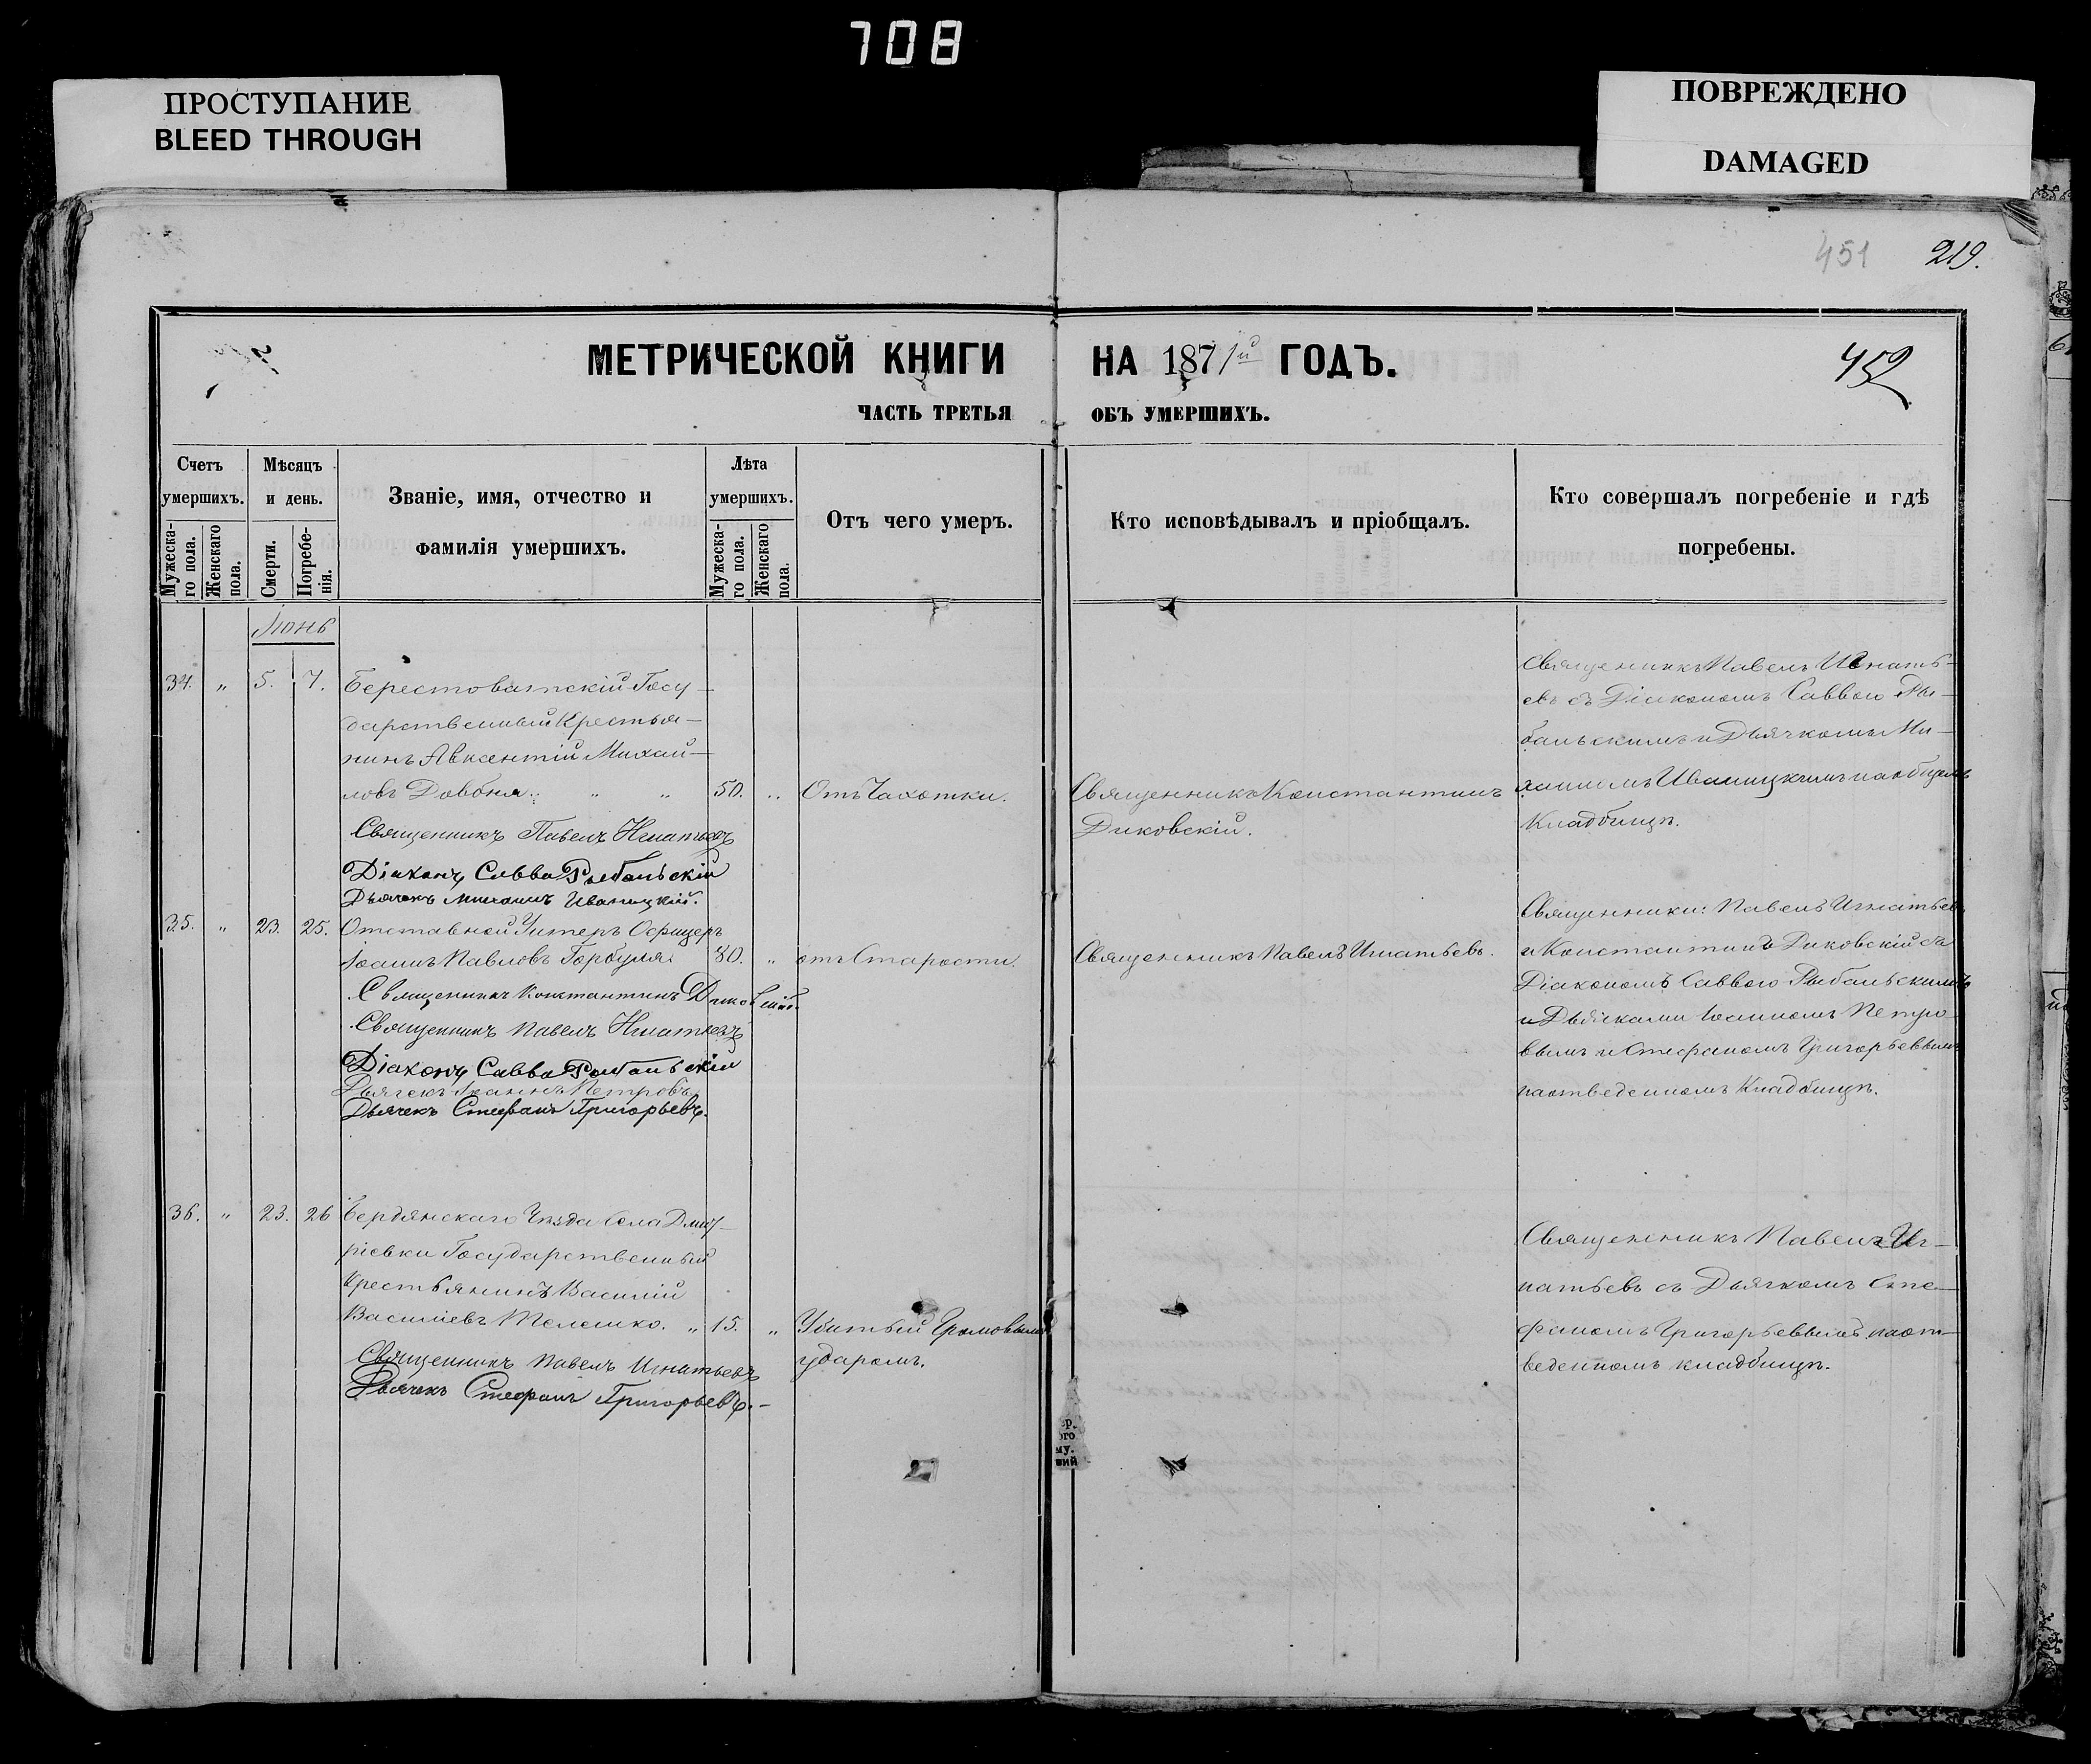 708
ПРОСТУПАНИЕ
BLEED THROUGH
ПОВРЕЖДЕНО
DAMAGED
451 219.
МЕТРИЧЕСКОЙ КНИГИ НА 1871й ГОДЪ.
452
ЧАСТЬ ТРЕТЬЯ ОБЪ УМЕРШИХЪ.
Счетъ умершихъ.
Мужеска-го пола.
Женскаго пола.
Мѣсяцъ и день.
Смерти.
Погребе-нія.
Званіе, имя, отчество и
фамилія умершихъ.
Лѣта умершихъ.
Мужеска-го пола.
Женскаго пола.
Отъ чего умеръ.
Кто исповѣдывалъ и пріобщалъ.
Кто совершалъ погребеніе и гдѣ
погребены.
Іюнь
34. " 5. 7. Берестоватскій Госу-
дарственный Крестья-
нинъ Авксентій Михай-
ловъ Довбня. " " 50. " Отъ Чахотки.
Священникъ Константинъ
Диковскій.
Священникъ Павелъ Игнать-
евъ съ Діакономъ Саввою Ры-
бальскимъ и Дьячкомъ Ми-
хаиломъ Иваницкимъ на общемъ
Кладбищѣ.
Священникъ Павелъ Игнатьевъ
Діаконъ Савва Рыбальскій
Дьячекъ Михаилъ Иваницкій.
35. " 23. 25. Отставной Унтеръ Офицеръ
Іоаннъ Павловъ Горбуля 80. " отъ Старости.
Священникъ Павелъ Игнатьевъ.
Священники: Павелъ Игнатьевъ
и Константинъ Диковскій съ
Діакономъ Саввою Рыбальскимъ
и Дьячками Іоанномъ Петро-
вымъ и Стефаномъ Григорьевымъ
на отведенномъ Кладбищѣ.
Священникъ Константинъ Диковскій.
Священникъ Павелъ Игнатьевъ
Діаконъ Савва Рыбальскій
Дьячекъ Іоаннъ Петровъ
Дьячекъ Стефанъ Григорьевъ.
36. " 23. 26 Бердянскаго Уѣзда Села Дмит-
ріевки Государственный
Крестьянинъ Василій
Василіевъ Телешко. " 15. " Убитый Громовымъ
ударомъ.
Священникъ Павелъ Иг-
натьевъ съ Дьячкомъ Сте-
фаномъ Григорьевымъ на от-
веденномъ кладбищѣ.
Священникъ Павелъ Игнатьевъ
Дьячекъ Стефанъ Григорьевъ.-